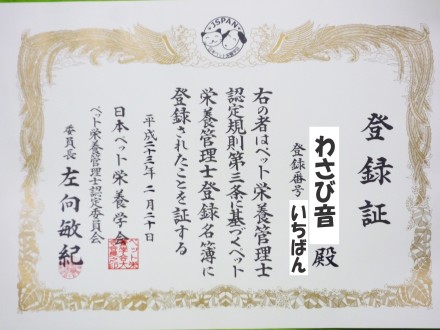 JSPAN
登録証
わさび音 殿
登録番号 いちばん
右の者はペット栄養管理士
認定規則第三条に基づくペット
栄養管理士登録名簿に
登録されたことを証する
平成二十三年二月二十日
日本ペット栄養学会
ペット栄養管理士認定委員会
委員長 左向敏紀